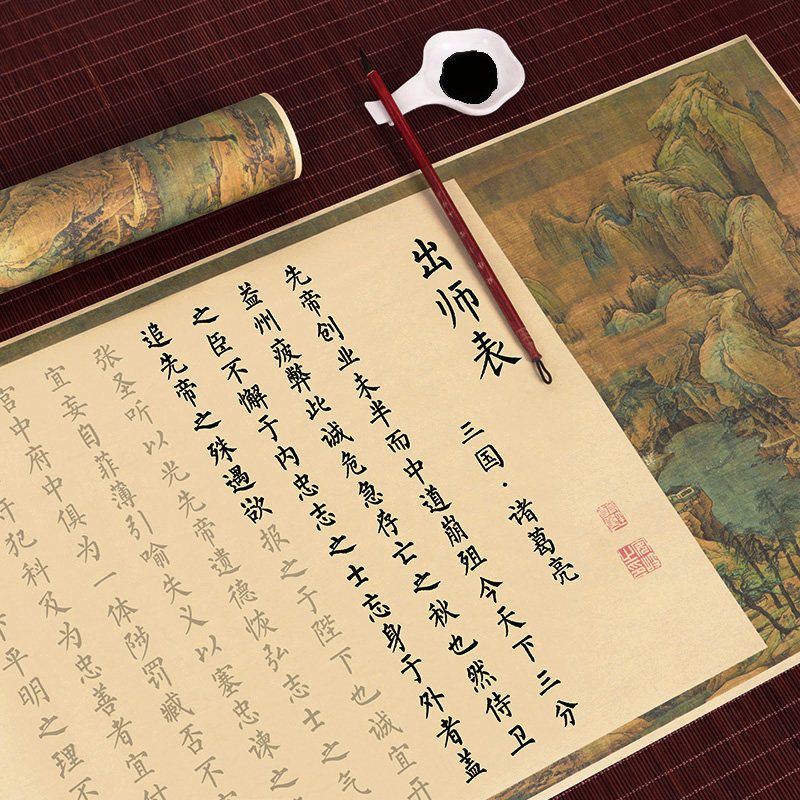 出师表
三国·诸葛亮
先帝创业未半而中道崩殂今天下三分
益州疲弊此诚危急存亡之秋也然侍卫
之臣不懈于内忠志之士忘身于外者盖
追先帝之殊遇欲报之于陛下也诚宜开
张圣听以光先帝遗德恢弘志士之气
宜妄自菲薄引喻失义以塞忠谏之
宫中府中俱为一体陟罚臧否不
犯科及为忠善者宜付
平明之理不